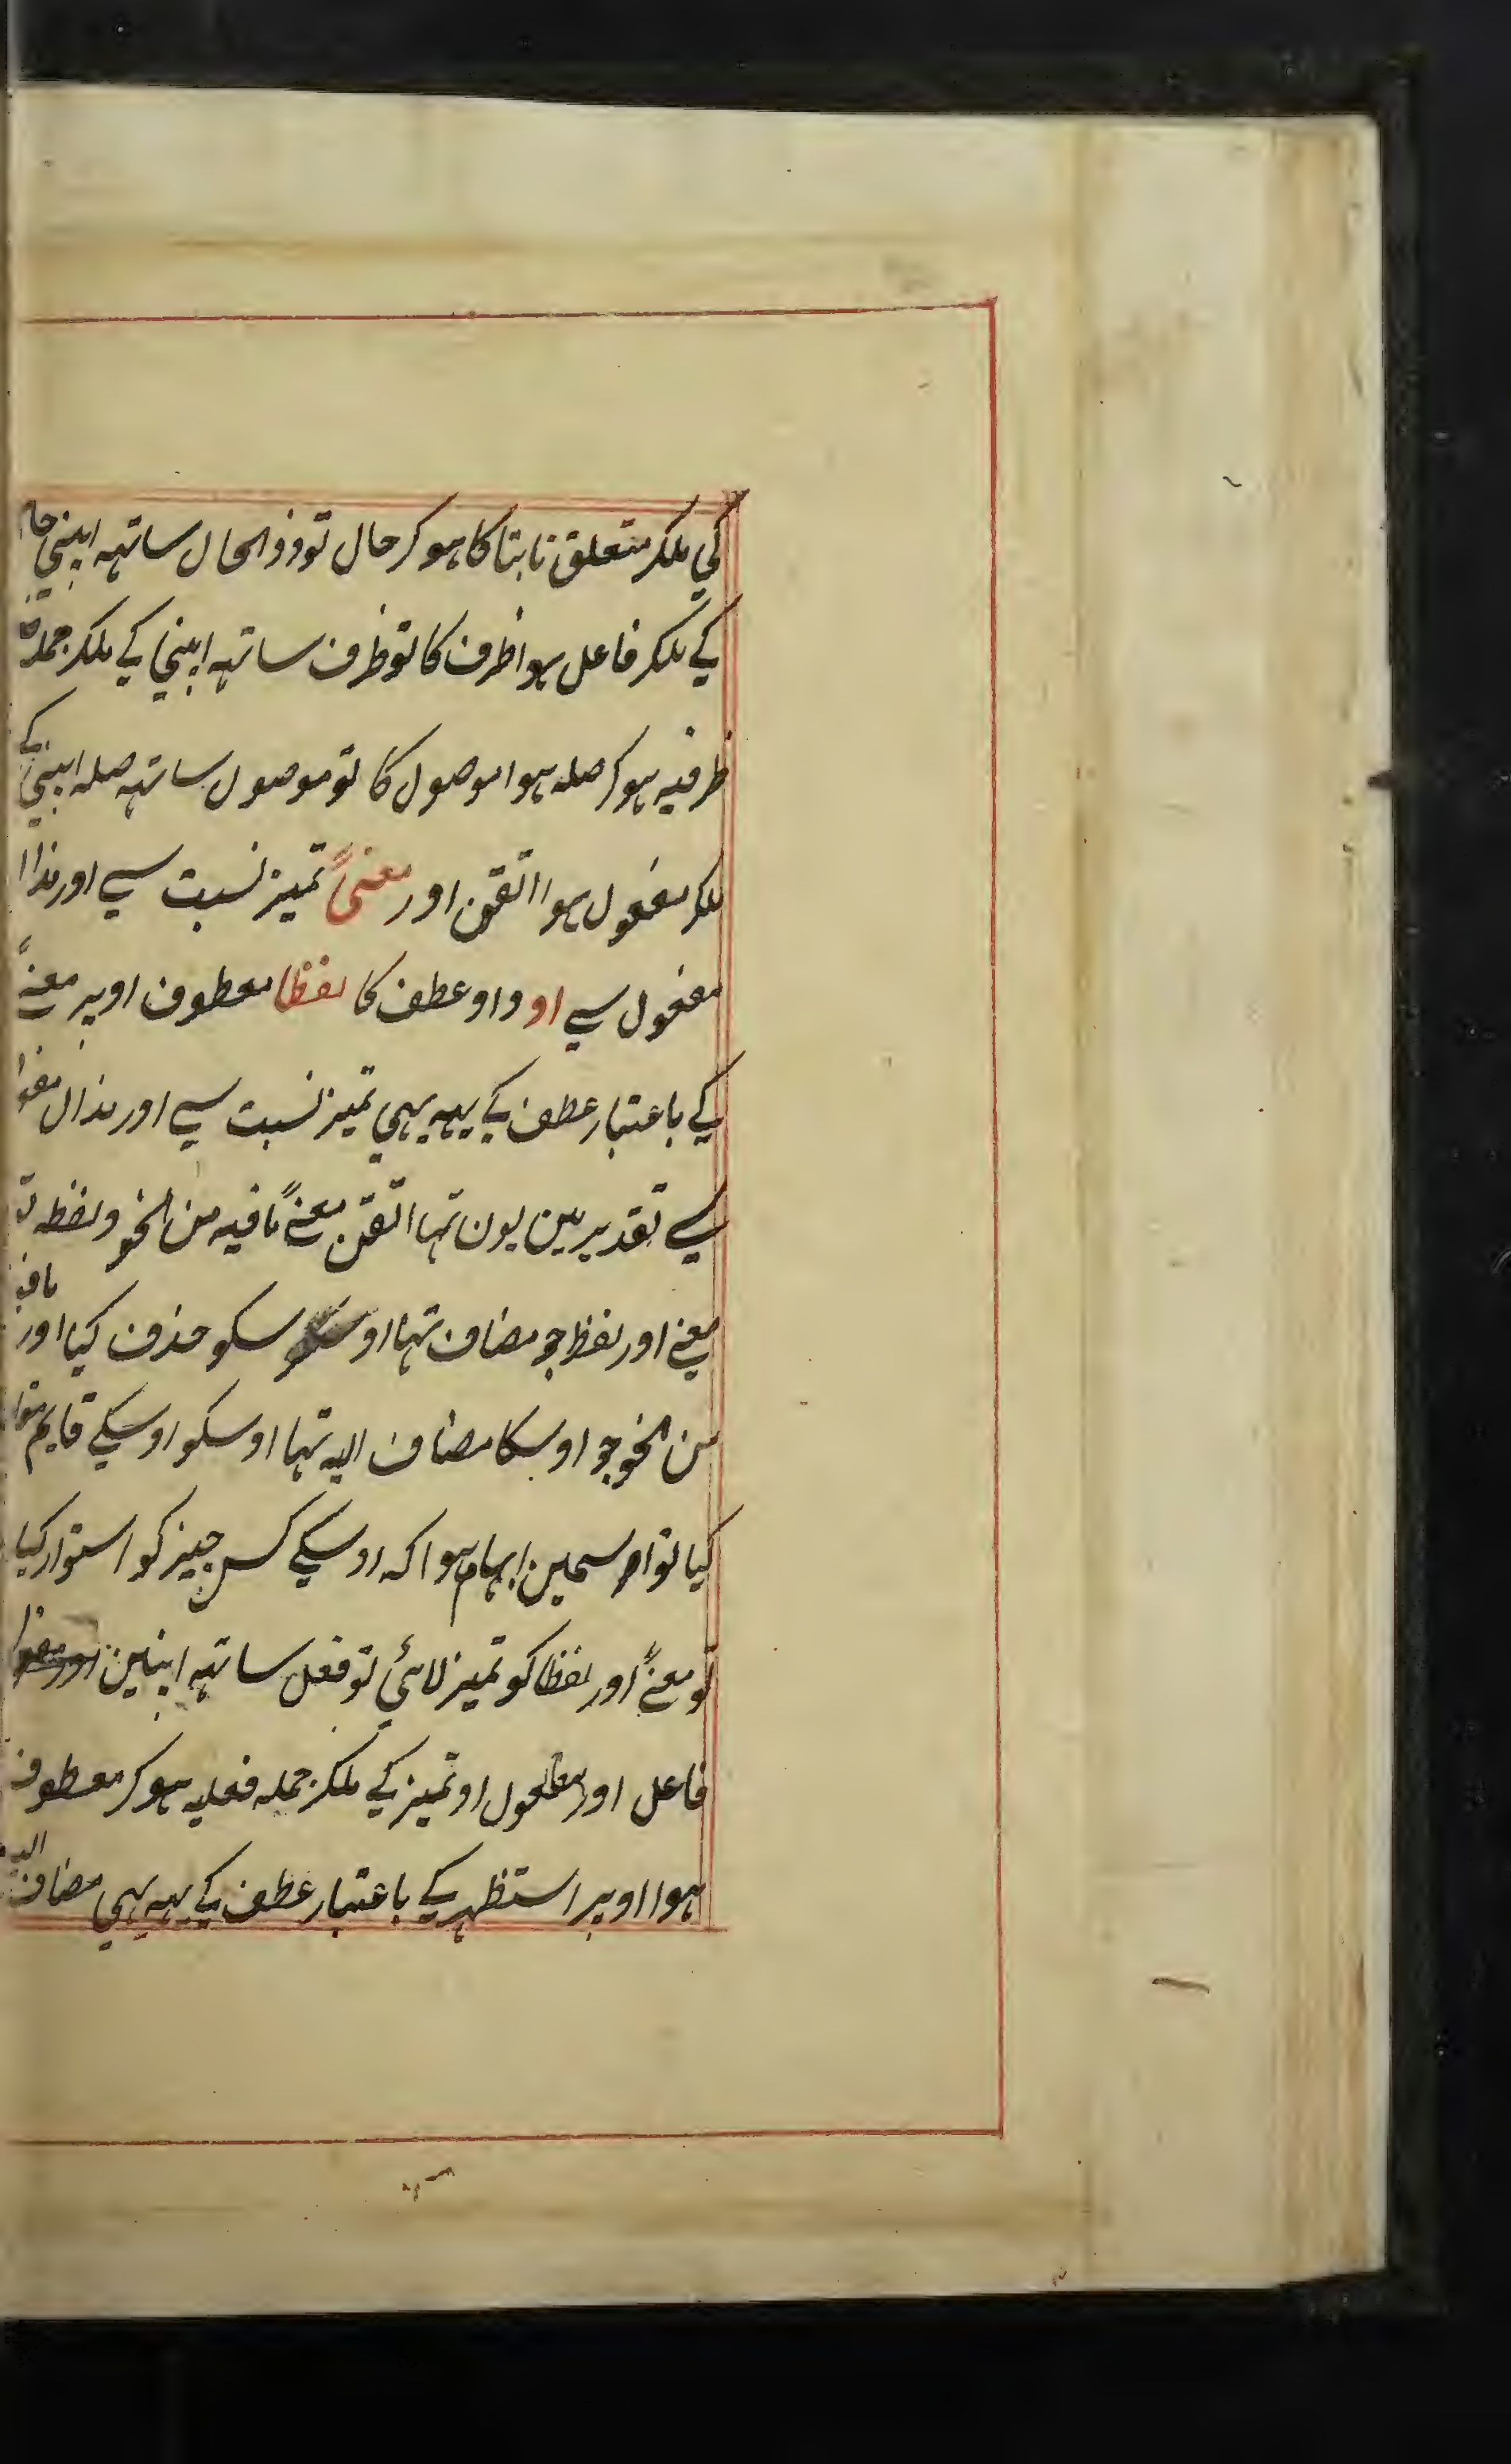 کی ملکر متعلق ثابتا کا ہوکر حال تو ذوالحال ساتہہ اپنی حا
کے ملکر فاعل ہوا ظرف کا تو ظرف ساتہہ اپنی کے ملکر جملہ
ظرفیہ ہوکر صلہ ہوا موصول کا تو موصول ساتہہ صلہ اپنی کے
ملکر مفعول ہوا اتقن اور معنیً تمیز نسبت سے اور
مفعول سے او واو عطف کا لفظا معطوف اوپر معنےً
کے باعتبار عطف کے یہہ بہی تمیز نسبت سے اور
سے تقدیر مین یون تہا اتقن معنےً مافیہ من النحو ولفظہ تو
معنے اور لفظ جو مضاف تہا اوسکو حذف کیا اور مافیہ
من النحو جو اوسکا مضاف الیہ تہا اوسکو اوسکے قایم مقا
کیا تو اسمین ابہام ہوا کہ اوسکے کس چیز کو استوار کیا
تو معنےً اور لفظا کو تمیز لائی تو فعل ساتہہ اپنین
فاعل اور مفعول او تمیز کے ملکر جملہ فعلیہ ہوکر معطوف
ہوا اوپر استظہر کے باعتبار عطف کے یہہ بہی مضاف الیہ